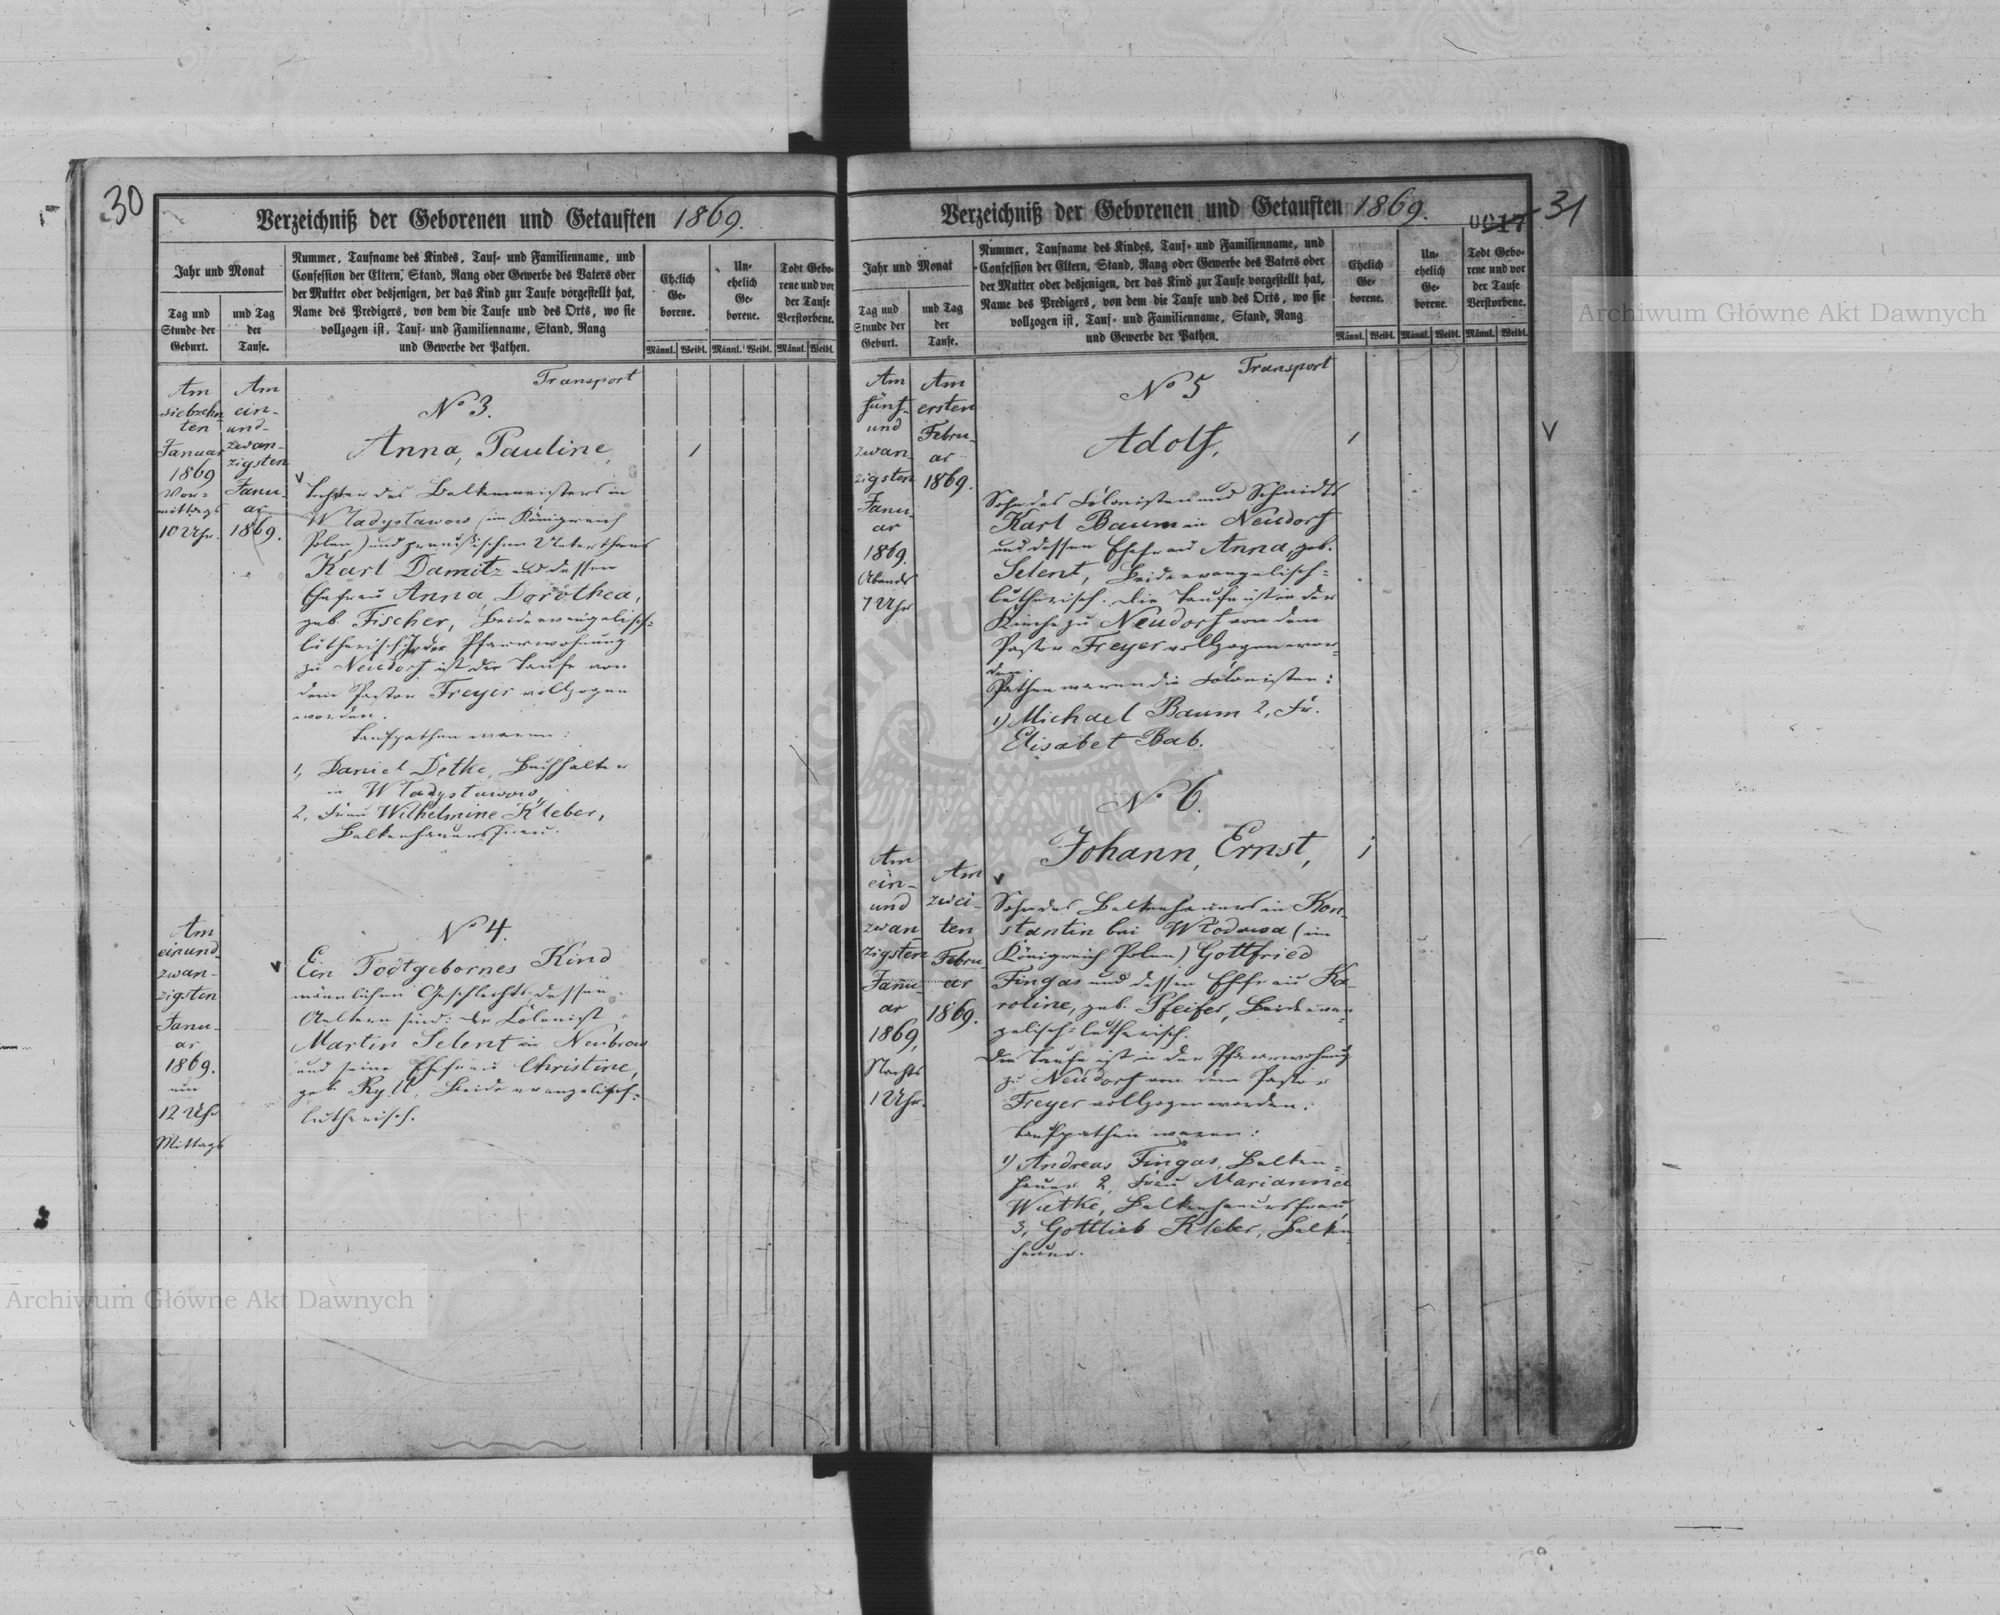 30
Verzeichniß der Geborenen und Getauften 1869.
Jahr und Monat
Tag und
Stunde der
Geburt.
und Tag
der
Taufe.
Nummer, Taufname des Kindes, Tauf- und Familienname, und
Confession der Eltern, Stand, Rang oder Gewerbe des Vaters oder
der Mutter oder desjenigen, der das Kind zur Taufe vorgestellt hat,
Name des Predigers, von dem die Taufe und des Orts, wo sie
vollzogen ist, Tauf- und Familienname, Stand, Rang
und Gewerbe der Pathen.
Ehelich
Ge-
borene.
Un-
ehelich
Ge-
borene.
Todt Gebo-
rene und vor
der Taufe
Verstorbene.
Männl. Weibl. Männl. Weibl. Männl. Weibl.
Am
siebzehn
ten
Januar
1869
Vor-
mittags
10 Uhr.
Am
ein-
und-
zwan-
zigsten
Janu-
ar
1869.
Transport
No 3.
Anna, Pauline,
1
Tochter des Balkenmeisters in
Władysławow (im Königreich
Polen) und preußischen Unterthans
Karl Damitz und dessen
Ehefrau Anna Dorothea,
geb. Fischer, Beide evangelisch-
lutherisch. In der Pfarrwohnung
zu Neudorf ist die Taufe von
dem Pastor Freyer vollzogen
worden.
Taufpathen waren:
1, Daniel Detke, Buchhalter
in Władysławow,
2, Frau Wilhelmine Kleber,
Balkenhauersfrau.
Am
einund-
zwan-
zigsten
Janu-
ar
1869.
um
12 Uhr
Mittags
No 4.
Ein Todtgebornes Kind
männlichen Geschlechts, dessen
Aeltern sind: der Colonist
Martin Selent in Neubrow
und seine Ehefrau Christine,
geb. Ryll, Beide evangelisch-
lutherisch.
31
Verzeichniß der Geborenen und Getauften 1869.
0017
Jahr und Monat
Tag und
Stunde der
Geburt.
und Tag
der
Taufe.
Nummer, Taufname des Kindes, Tauf- und Familienname, und
Confession der Eltern, Stand, Rang oder Gewerbe des Vaters oder
der Mutter oder desjenigen, der das Kind zur Taufe vorgestellt hat,
Name des Predigers, von dem die Taufe und des Orts, wo sie
vollzogen ist, Tauf- und Familienname, Stand, Rang
und Gewerbe der Pathen.
Ehelich
Ge-
borene.
Un-
ehelich
Ge-
borene.
Todt Gebo-
rene und vor
der Taufe
Verstorbene.
Männl. Weibl. Männl. Weibl. Männl. Weibl.
Am
fünf-
und
zwan-
zigsten
Janu-
ar
1869.
Abends
7 Uhr
Am
ersten
Febru-
ar
1869.
Transport
No 5
Adolf,
1
Sohn des Colonisten und Schmidts
Karl Baum in Neudorf
und dessen Ehefrau Anna, geb.
Selent, Beide evangelisch-
lutherisch. Die Taufe ist in der
Kirche zu Neudorf von dem
Pastor Freyer vollzogen wor-
den.
Pathen waren die Colonisten:
1) Michael Baum 2, Fr.
Elisabet Bab.
Am
ein-
und
zwan
zigsten
Janu-
ar
1869,
Nachts
1 Uhr.
Am
zwei-
ten
Febru-
ar
1869.
No 6.
Johann, Ernst,
1
Sohn des Balkenhauers in Kon-
stantin bei Włodawa (im
Königreich Polen) Gottfried
Fingas und dessen Ehefrau Ka-
roline, geb. Pfeifer, Beide evan-
gelisch-lutherisch.
Die Taufe ist in der Pfarrwohnung
zu Neudorf von dem Pastor
Freyer vollzogen worden.
Taufpathen waren:
1) Andreas Fingas, Balken-
hauer 2, Frau Marianna
Wutke, Balkenhauersfrau,
3, Gottlieb Kleber, Balken-
hauer.
Archiwum Główne Akt Dawnych
Archiwum Główne Akt Dawnych